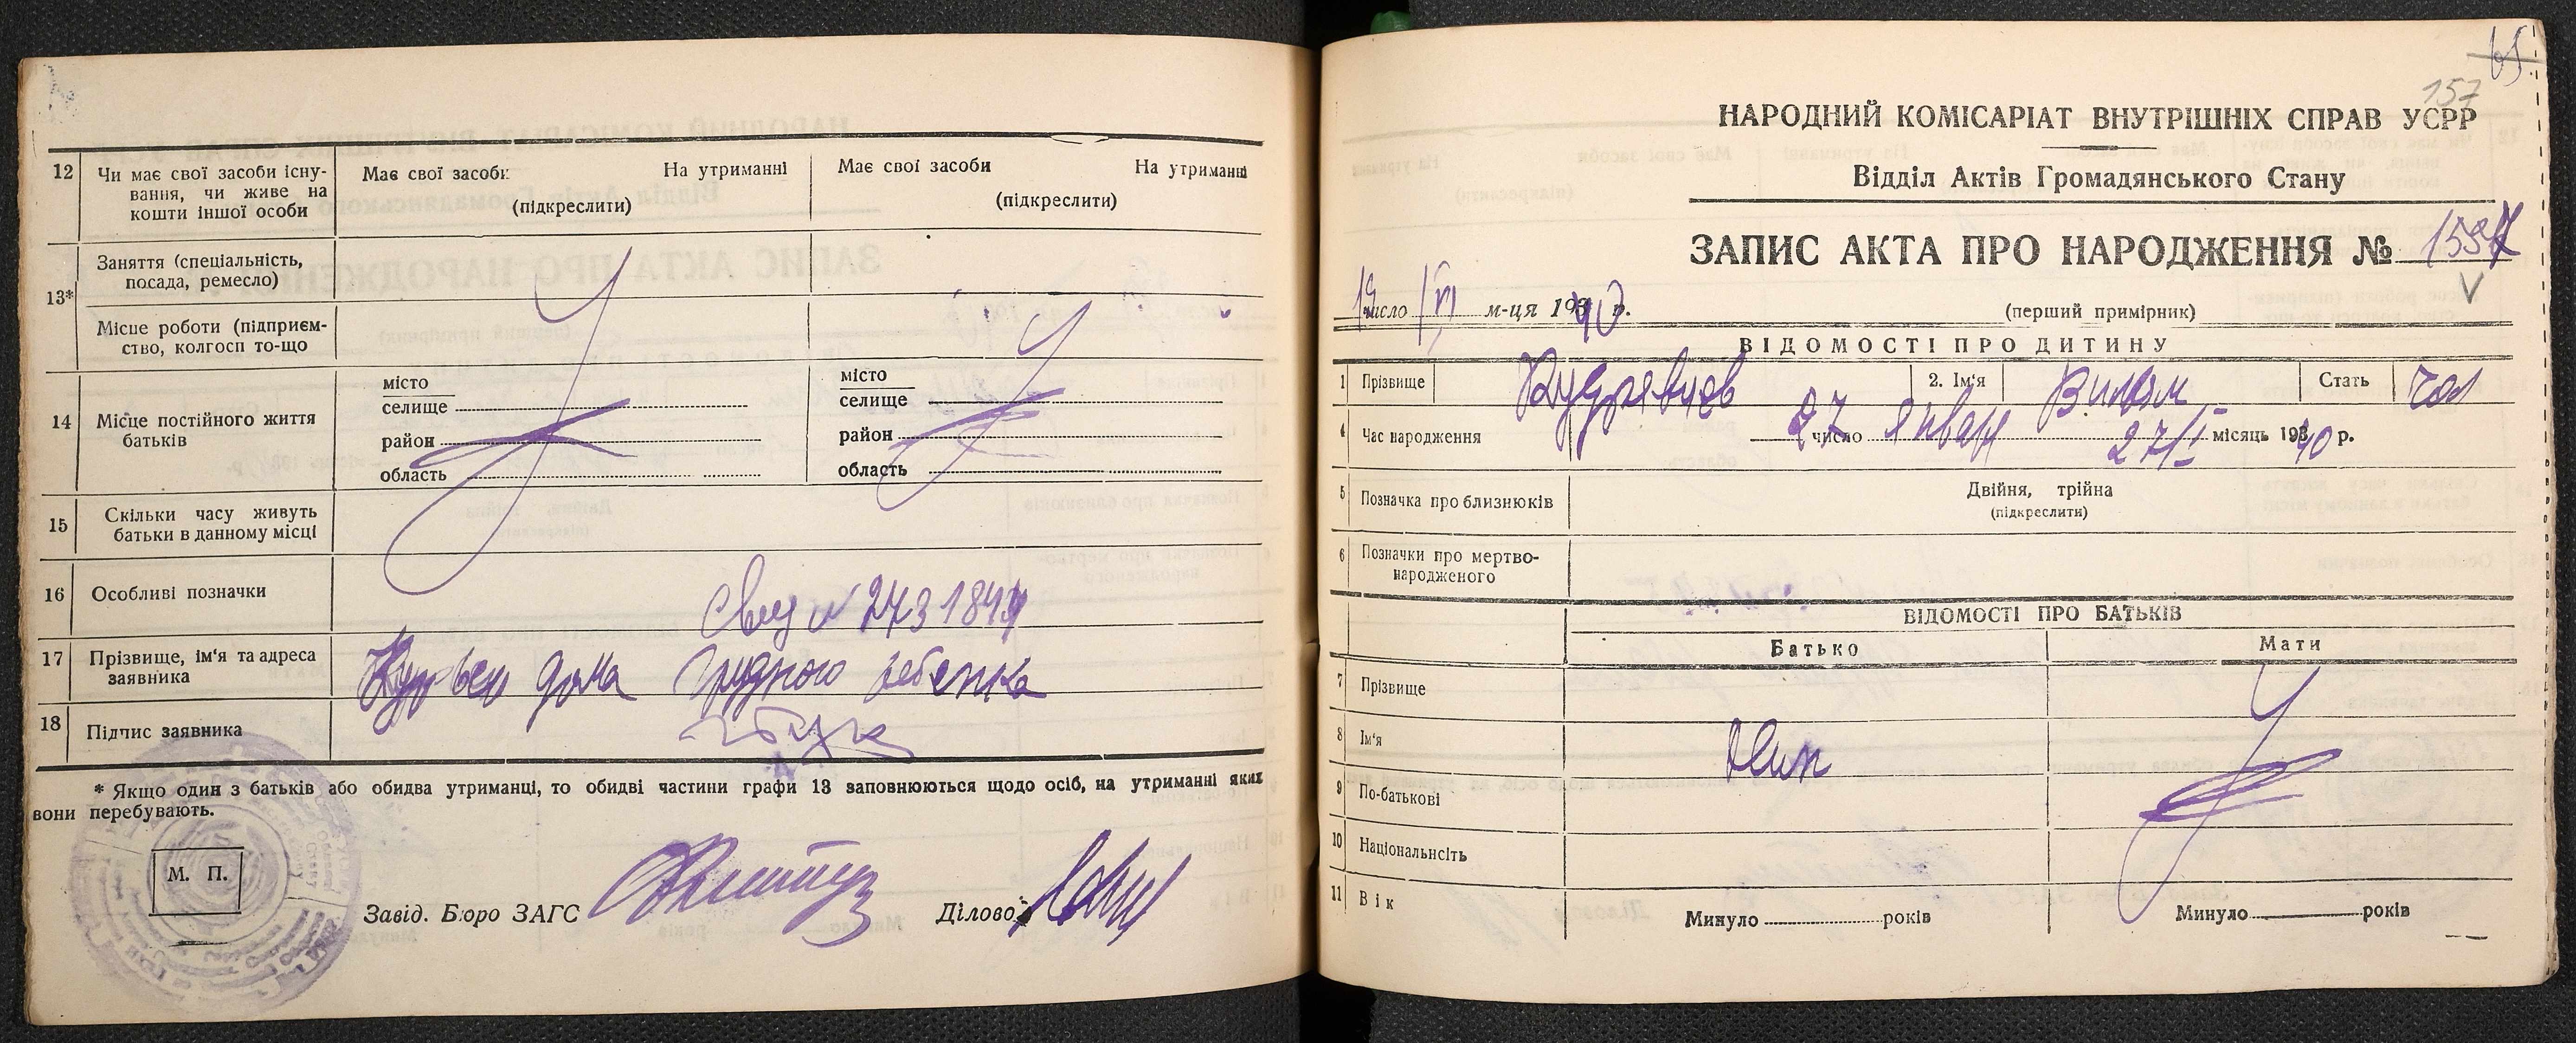 12 Чи має свої засоби існу-
вання, чи живе на
кошти іншої особи
Має свої засоби На утриманні
(підкреслити)
Має свої засоби На утриманні
(підкреслити)
13* Заняття (спеціальність,
посада, ремесло)
Місце роботи (підприєм-
ство, колгосп то-що
14 Місце постійного життя
батьків
місто
селище
район
область
місто
селище
район
область
15 Скільки часу живуть
батьки в данному місці
16 Особливі позначки
17 Прізвище, ім'я та адреса
заявника
дома грудного ребенка
18 Підпис заявника
* Якщо один з батьків або обидва утриманці, то обидві частини графи 13 заповнюються щодо осіб, на утриманні яких
вони перебувають.
М. П.
Завід. Бюро ЗАГС
Діловод
65
157
НАРОДНИЙ КОМІСАРІАТ ВНУТРІШНІХ СПРАВ УСРР
Відділ Актів Громадянського Стану
ЗАПИС АКТА ПРО НАРОДЖЕННЯ №
число VI м-ця 1940 р.
(перший примірник)
ВІДОМОСТІ ПРО ДИТИНУ
1 Прізвище Кудрявцев 2. Ім'я Стать чол
4 Час народження 27 число Января 27/I місяць 1940 р.
5 Позначка про близнюків
Двійня, трійна
(підкреслити)
6 Позначки про мертво-
народженого
ВІДОМОСТІ ПРО БАТЬКІВ
Батько Мати
7 Прізвище
8 Ім'я
9 По-батькові
10 Національність
11 Вік
Минуло років
Минуло років